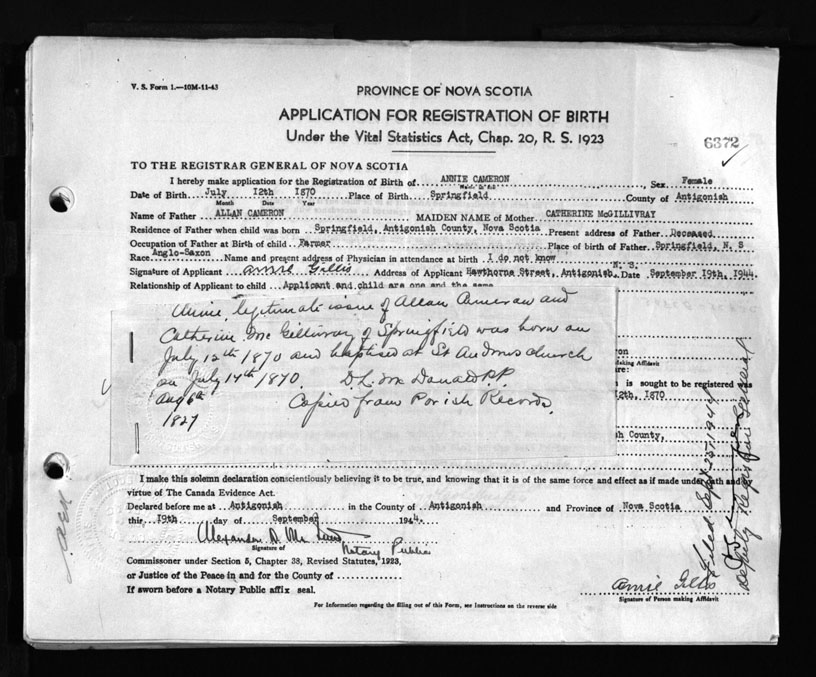 V. S. Form 1.—10M-11-43
PROVINCE OF NOVA SCOTIA
APPLICATION FOR REGISTRATION OF BIRTH
Under the Vital Statistics Act, Chap. 20, R. S. 1923
6372
TO THE REGISTRAR GENERAL OF NOVA SCOTIA
I hereby make application for the Registration of Birth of ANNIE CAMERON Sex Female
Name in full
Date of Birth July 12th 1870 Place of Birth Springfield County of Antigonish
Month Date Year
Name of Father ALLAN CAMERON MAIDEN NAME of Mother CATHERINE McGILLIVRAY
Residence of Father when child was born Springfield, Antigonish County, Nova Scotia Present address of Father Deceased
Occupation of Father at Birth of child Farmer Place of birth of Father Springfield, N. S
Race Anglo-Saxon Name and present address of Physician in attendance at birth I do not know
Signature of Applicant Annie Gillis Address of Applicant Hawthorne Street, Antigonish, N. S. Date September 19th, 1944.
Relationship of Applicant to child Applicant and child are one and the same
Annie legitimate issue of Allan Cameron and
Catherine McGillivray of Springfield was born on
July 12th 1870 and baptised at St Andrews church
on July 14th 1870. D. L. McDonald P.P.
Aug 6th Copied from Parish Records.
1827
ron
making Affidavit
are:
is sought to be registered was
12th, 1870
h County,
I make this solemn declaration conscientiously believing it to be true, and knowing that it is of the same force and effect as if made under oath and
virtue of The Canada Evidence Act.
Declared before me at Antigonish in the County of Antigonish and Province of Nova Scotia
this 19th day of September 1944.
Alexander D. Mc
Signature of Notary Public
Commissioner under Section 5, Chapter 38, Revised Statutes, 1923,
or Justice of the Peace in and for the County of
If sworn before a Notary Public affix seal.
Annie Gillis
Signature of Person making Affidavit
For Information regarding the filling out of this Form, see Instructions on the reverse side
Filed Sept 25, 1944
Deputy Registrar General